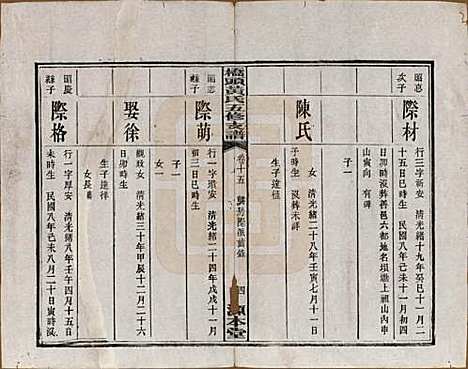 昭忠
次子
際材
行三字新安 清光緒十九年癸巳十一月二
十五日巳時生 民國八年十一月初四
日卯時沒葬善邑六都地名壩壪上祖山內申
山寅向 有碑
子一
陳氏
女 清光緒二十八年壬寅七月十一日
子時生 沒葬未詳
生子達植
橋頭黃氏五修支譜
卷十五
四
源本堂
昭忠
繼子
際萌
行一字璀安 清光緒二十四年戊戌十一月
初三日巳時生
子一
娶徐
觀政女 清光緒三十年甲辰十二月二十六
日卯時生
生子達律
女長
昭慶
繼子
際格
行一字厚安 清光緒八年壬午四月十五日
未時生 民國八年己未八月二十日寅時沒